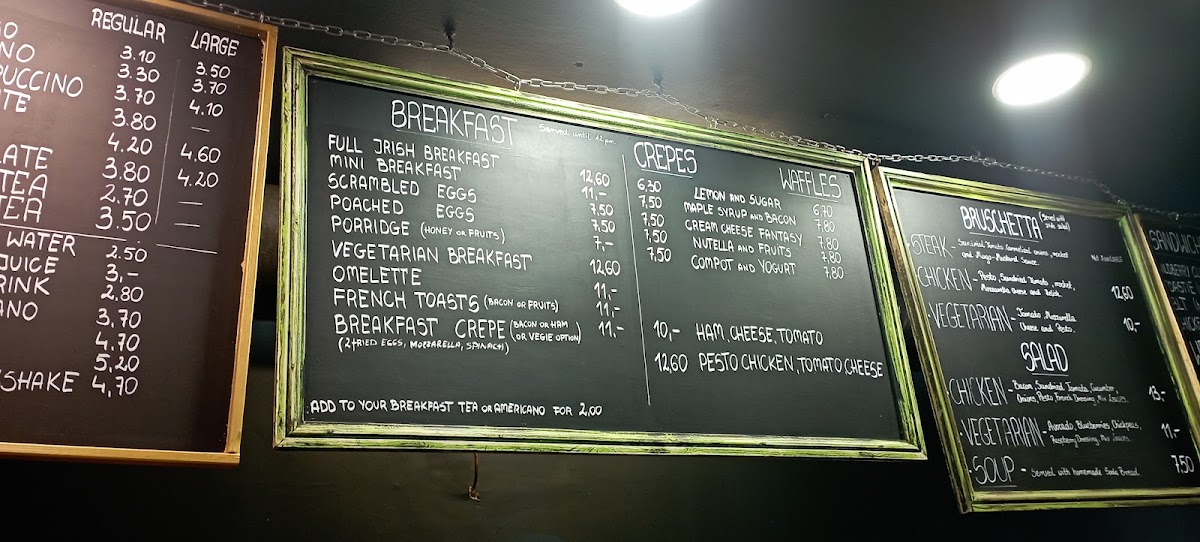 REGULAR LARGE
3.10 3.50
NO 3.30 3.70
PUCCINO 3.70 4.10
3.80 —
4.20 4.60
LATE 3.80 4.20
TEA 2.70 —
TEA 3.50 —
WATER 2.50
JUICE 3,-
RINK 2.80
ANO 3.70
4.70
5.20
SHAKE 4,70
BREAKFAST Served until 12 pm
FULL IRISH BREAKFAST 12,60
MINI BREAKFAST 11,-
SCRAMBLED EGGS 7,50
POACHED EGGS 7,50
PORRIDGE (HONEY OR FRUITS) 7,-
VEGETARIAN BREAKFAST 12,60
OMELETTE 11,-
FRENCH TOASTS (BACON OR FRUITS) 11,-
BREAKFAST CREPE (BACON OR HAM 11,-
(OR VEGIE OPTION)
(2 FRIED EGGS, MOZZARELLA, SPINACH)
ADD TO YOUR BREAKFAST TEA OR AMERICANO FOR 2,00
CREPES WAFFLES
6,30 LEMON AND SUGAR 6,70
7,50 MAPLE SYRUP AND BACON 7,80
7,50 CREAM CHEESE FANTASY 7,80
7,50 NUTELLA AND FRUITS 7,80
7,50 COMPOT AND YOGURT 7,80
10,- HAM, CHEESE, TOMATO
12,60 PESTO CHICKEN, TOMATO CHEESE
BRUSCHETTA (Served with
side salad)
STEAK - Sundried Tomato Caramelized onions, rocket
and Mayo-Mustard Sauce. Not AVAILABLE
CHICKEN - Pesto, Sundried Tomato, rocket,
Mozzarella cheese and Relish. 12,60
VEGETARIAN - Tomato, Mozzarella
Cheese and Pesto. 10,-
SALAD
CHICKEN - Bacon, Sundried Tomato, Cucumber,
Onions, Pesto French Dressing, Mix Leaves. 13,-
VEGETARIAN - Avocado, Blueberries, Chickpeas,
Raspberry Dressing, Mix Leaves. 11,-
SOUP - Served with homemade Soda Bread. 7,50